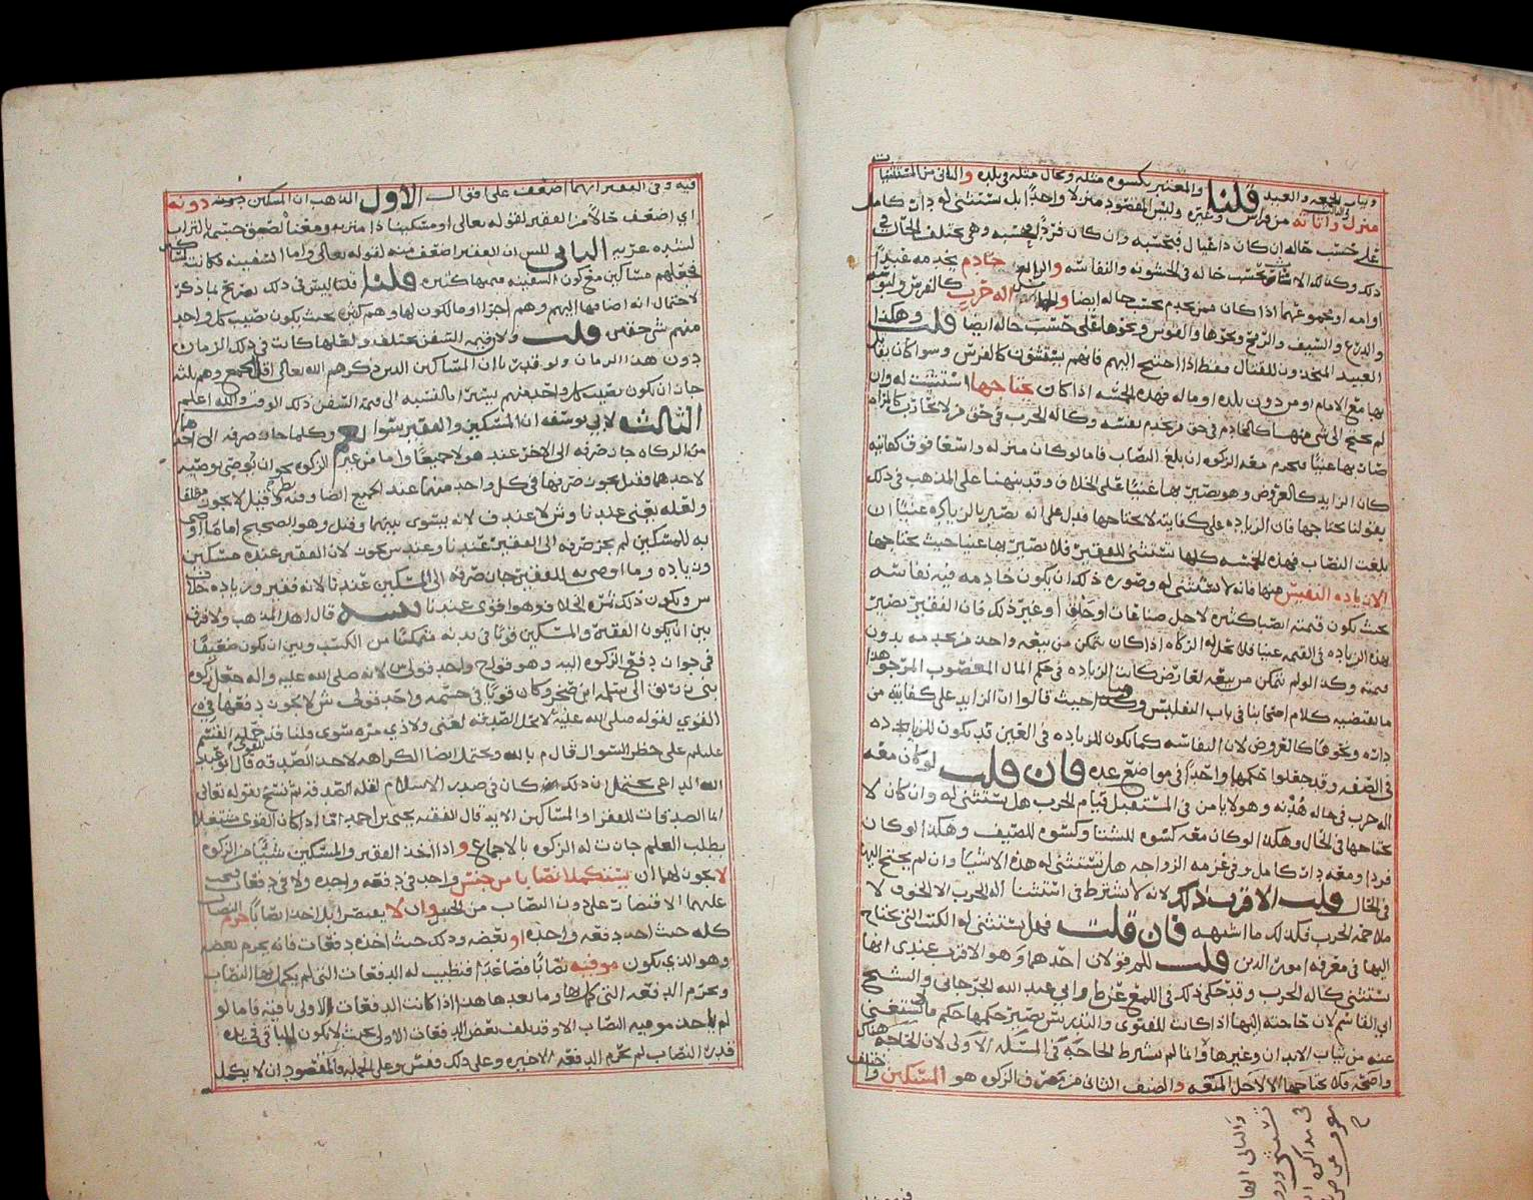 وثياب الجمعه والعيد قلنا والمعتبر بكسوه مثله وبحال مثله في بلده والثاني من المستثنيات
منزل واثاثه من فراش وغيره وليس المقصود منزلا واحدا بل يستثنى له دار كامل
على حسب حاله ان كان ذا عيال فبحسبه وان كان فردا فبحسبه وهي تختلف الحال في
ذلك وكذلك الاثاث بحسب حاله في الخشونه والنفاسه والرابع خادم يخدمه عبدا
او امه او مجموعهما اذا كان ممن يخدم بحسب حاله ايضا اله حرب كالفرس
والدرع والسيف والرمح ونحوها والقوس ونحوها على حسب حاله ايضا قلت وهكذا
العبيد المتخذون للقتال فقط اذا احتيج اليهم فانهم يستثنون كالفرس وسوا كان يقاتل
بها مع الامام او من دون بلده او ماله فهذه الخمسه اذا كان يحتاجها استثنيت له وان
لم يحتج الى شي منها كالخادم في حق من يخدم نفسه وكاله الحرب في حق من لا يحارب كالمراه
صار بها غنيا فيحرم معه الزكوه ان بلغ النصاب فاما لو كان منزله واسعا فوق كفايته
كان الزايد كالعروض وهو يصير بها غنيا على الخلاف وقد نبهنا على المذهب في ذلك
بقولنا يحتاجها فان الزياده على كفايته لا يحتاجها فدل على انه يصير بالزياده غنيا ان
بلغت النصاب فهذه الخمسه كلها تستثنى للفقير فلا يصير بها غنيا حيث يحتاجها
الا زياده النفيس منها فانه لا يستثنى له وصوره ذلك ان يكون خادمه فيه نفاسه
بحيث يكون قيمته انصبا كثيره لاجل صناعات او خلق او غير ذلك فان الفقير يصير
بهذه الزياده في القيمه غنيا فلا تحل له الزكاه اذا كان يتمكن من بيعه واخذ من يخدمه بدون
قيمته وكذا لو لم يتمكن من بيعه لعارض كانت الزياده في حكم المال المغصوب المرجو هذا
ما يقتضيه كلام اصحابنا في باب التفليس وكذا هنا حيث قالوا ان الزايد على كفايته من
داره ونحوها كالعروض لان النفاسه كما تكون للزياده في العين قد تكون للزياده
في الصفه وقد جعلوا حكمهما واحدا في مواضع عده فان قلت لو كان معه
اله حرب في حاله هدنه وهو لا يامن في المستقبل قيام الحرب هل يستثنى له وان كان لا
يحتاجها في الحال وهكذا لو كان معه كسوه للشتا وكسوه للصيف وهكذا لو كان
فردا ومعه دار كامل وفي عزمه الزواجه هل تستثنى له هذه الاشيا وان لم يحتج اليها
في الحال قلت الاقرب ذلك لانه لا يشترط في استثنا اله الحرب الا الخوف لا
ملاحمه الحرب فكذلك ما اشبهه فان قلت فهل يستثنى له الكتب التي يحتاج
اليها في معرفه امور الدين قلت للم قولان احدهما وهو الاقرب عندي انها
تستثنى كاله الحرب وقد حكى ذلك في اللمع عن ط وابي عبد الله الجرجاني والشيخ
ابي القاسم لان حاجته اليها اذا كانت للفتوى والتدريس يصير حكمها حكم ما لا يستغنى
عنه من ثياب الابدان وغيرها وانما لم نشترط الحاجه في المسئله الاولى لان الحاجه هناك
واضحه فلا يحتاجها الا لاجل المنفعه والصنف الثاني من مصرف الزكوه هو المسكين واختلف
فيه وفي الفقير ايهما اضعف على اقوال الاول المذهب ان المسكين دونه
اي اضعف حالا من الفقير لقوله تعالى او مسكينا ذا متربه ومعناه لصق جسمه بالتراب
لشده عريه الثاني للش ان الفقير اضعف منه لقوله تعالى واما السفينه فكانت لمساكين
فجعلهم مساكين مع كون السفينه قيمتها كثيره قلنا ليس في ذلك تصريح لما ذكر
لاحتمال انه اضافها اليهم وهم اجرا او مالكون لها وهم كثير بحيث يكون نصيب كل واحد
منهم شي حقير قلت ولان قيمه السفن تختلف ولعلها كانت في ذلك الزمان
دون هذا الزمان ولو قدرنا ان المساكين الذين ذكرهم الله تعالى اقل الجمع وهم ثلثه
جاز ان يكون نصيب كل واحد منهم يسيرا بالنسبه الى قيمه السفن ذلك الوقت والله اعلم
الثالث لابي يوسف ان المسكين والفقير سوا نعم وكلما جاز صرفه الى احدهما
من الزكاه جاز صرفه الى الاخر عند هولا جميعا واما من غير الزكوه نحو ان يوصي بوصيه
لاحدهما فقيل يجوز صرفها في كل واحد منهما عند الجميع ايضا وفيه نظر وقيل لا يجوز مطلقا
ولعله يعني عندنا وش لا عند ف لانه يسوي بينهما وقيل وهو الصحيح اما ما اوصي
به للمسكين لم يجز صرفه الى الفقير عندنا وعند ش يجوز لان الفقير عنده مسكين
وزياده وما اوصي به للفقير جاز صرفه الى المسكين عندنا لانه فقير وزياده خلاف
ش ويكون ذلك ثمره الخلاف وهو اقوى عندنا تنبيه قال اهل المذهب ولا فرق
بين ان يكون الفقير والمسكين قويا في بدنه متمكنا من الكسب وبين ان يكون ضعيفا
في جواز دفع الزكوه اليه وهو قول ح واحد قولي ش لانه صلى الله عليه واله جعل زكوه
بني زريق الى سلمه ابن صخر وكان قويا في جسمه واحد قولي ش لا يجوز دفعها في
القوي لقوله صلى الله عليه لا تحل الصدقه لغني ولا ذي مره سوي قلنا
عليلم على حظر السوال قال م بالله ويحتمل ايضا الكراهه لاخذ الصدقه قال ابو عبد
الله الداعي يحتمل ان ذلك كان في صدر الاسلام لقله الصدقه ثم نسخ بقوله تعالى
انما الصدقات للفقرا والمساكين الايه قال الفقيه يحيى بن احمد اما اذا كان القوي مشتغلا
بطلب العلم جازت له الزكوه بالاجماع و اذا اخذ الفقير والمسكين شيئا من الزكوه
لا يجوز لهما ان يستكملا نصابا من جنس واحد في دفعه واحده ولا في دفعات
عليهما الاقتصار على دون النصاب من الجنس وان لا يقتصر بل اخذ نصابا حرم
كله حيث اخذ دفعه واحده او بعضه وذلك حيث اخذه دفعات فانه يحرم بعضه
وهو الذي يكون موفيه نصابا فصاعدا فتطيب له الدفعات التي لم يكمل بها النصاب
وتحرم الدفعه التي كمل بها وما بعدها هذا اذا كانت الدفعات الاولى باقيه فاما لو
لم ياخذ موفيه النصاب الا وقد تلف بعض الدفعات الاولى بحيث لا يكون الباقي في يده
قدر النصاب لم تحرم الدفعه الاخيره وعلى ذلك وقس وعلى الجمله فالمقصود ان لا يكمل